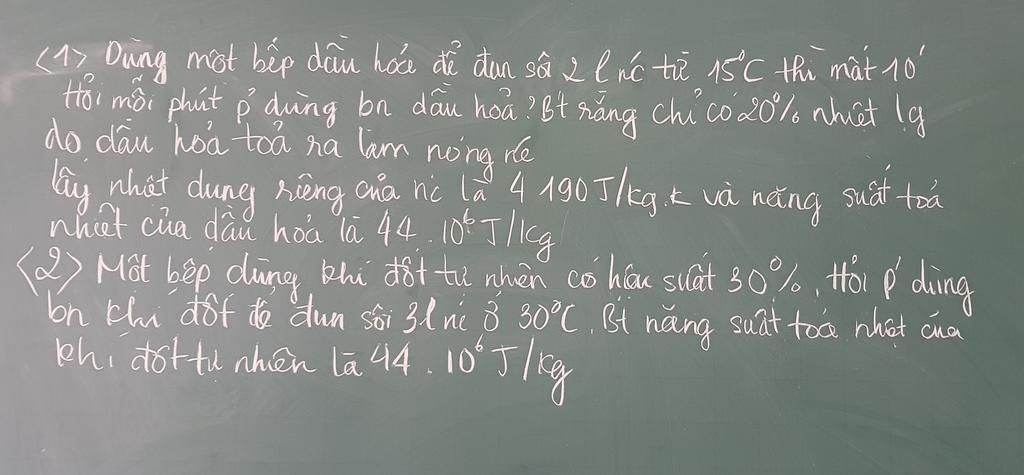 <1> Dùng một bếp dầu hoả để đun sôi 2l nc từ 15°C thì mất 10'
Hỏi mỗi phút p' dùng bn dầu hoả? Bt rằng chỉ có 20% nhiệt lg
do dầu hoả toả ra làm nóng nc
lấy nhiệt dung riêng của nc là 4 190J/kg.k và năng suất toả
nhiệt của dầu hoả là 44.10⁶ J/kg
<2> Một bếp dùng khí đốt tự nhiên có hiệu suất 30%. Hỏi p' dùng
bn khí đốt để đun sôi 3l nc ở 30°C. Bt năng suất toả nhiệt của
khí đốt tự nhiên là 44.10⁶ J/kg